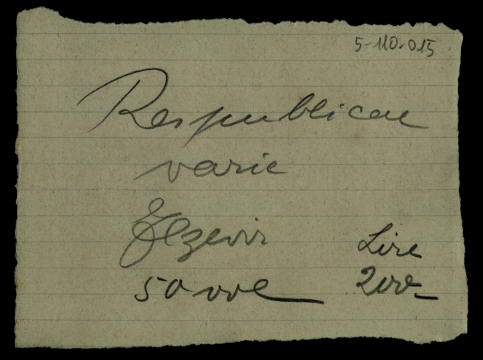 5-110-015
Respublicae
varie
Elzevir
50 vol
Lire
200-